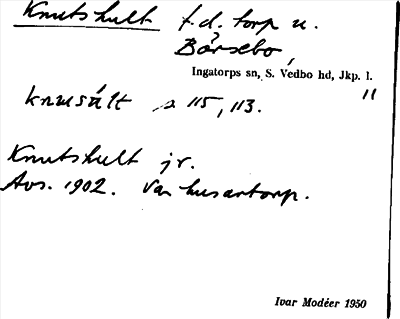 Knutshult f.d. torp u.
Bårsebo,
Ingatorps sn, S. Vedbo hd, Jkp. l.
11
knusált s 115, 113.
Knutshult jr.
Avs. 1902. Var husartorp.
Ivar Modéer 1950